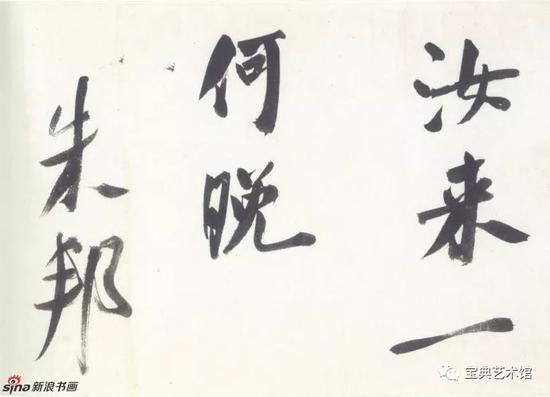 汝来一
何晚
朱邦
sina 新浪书画
宝典艺术馆